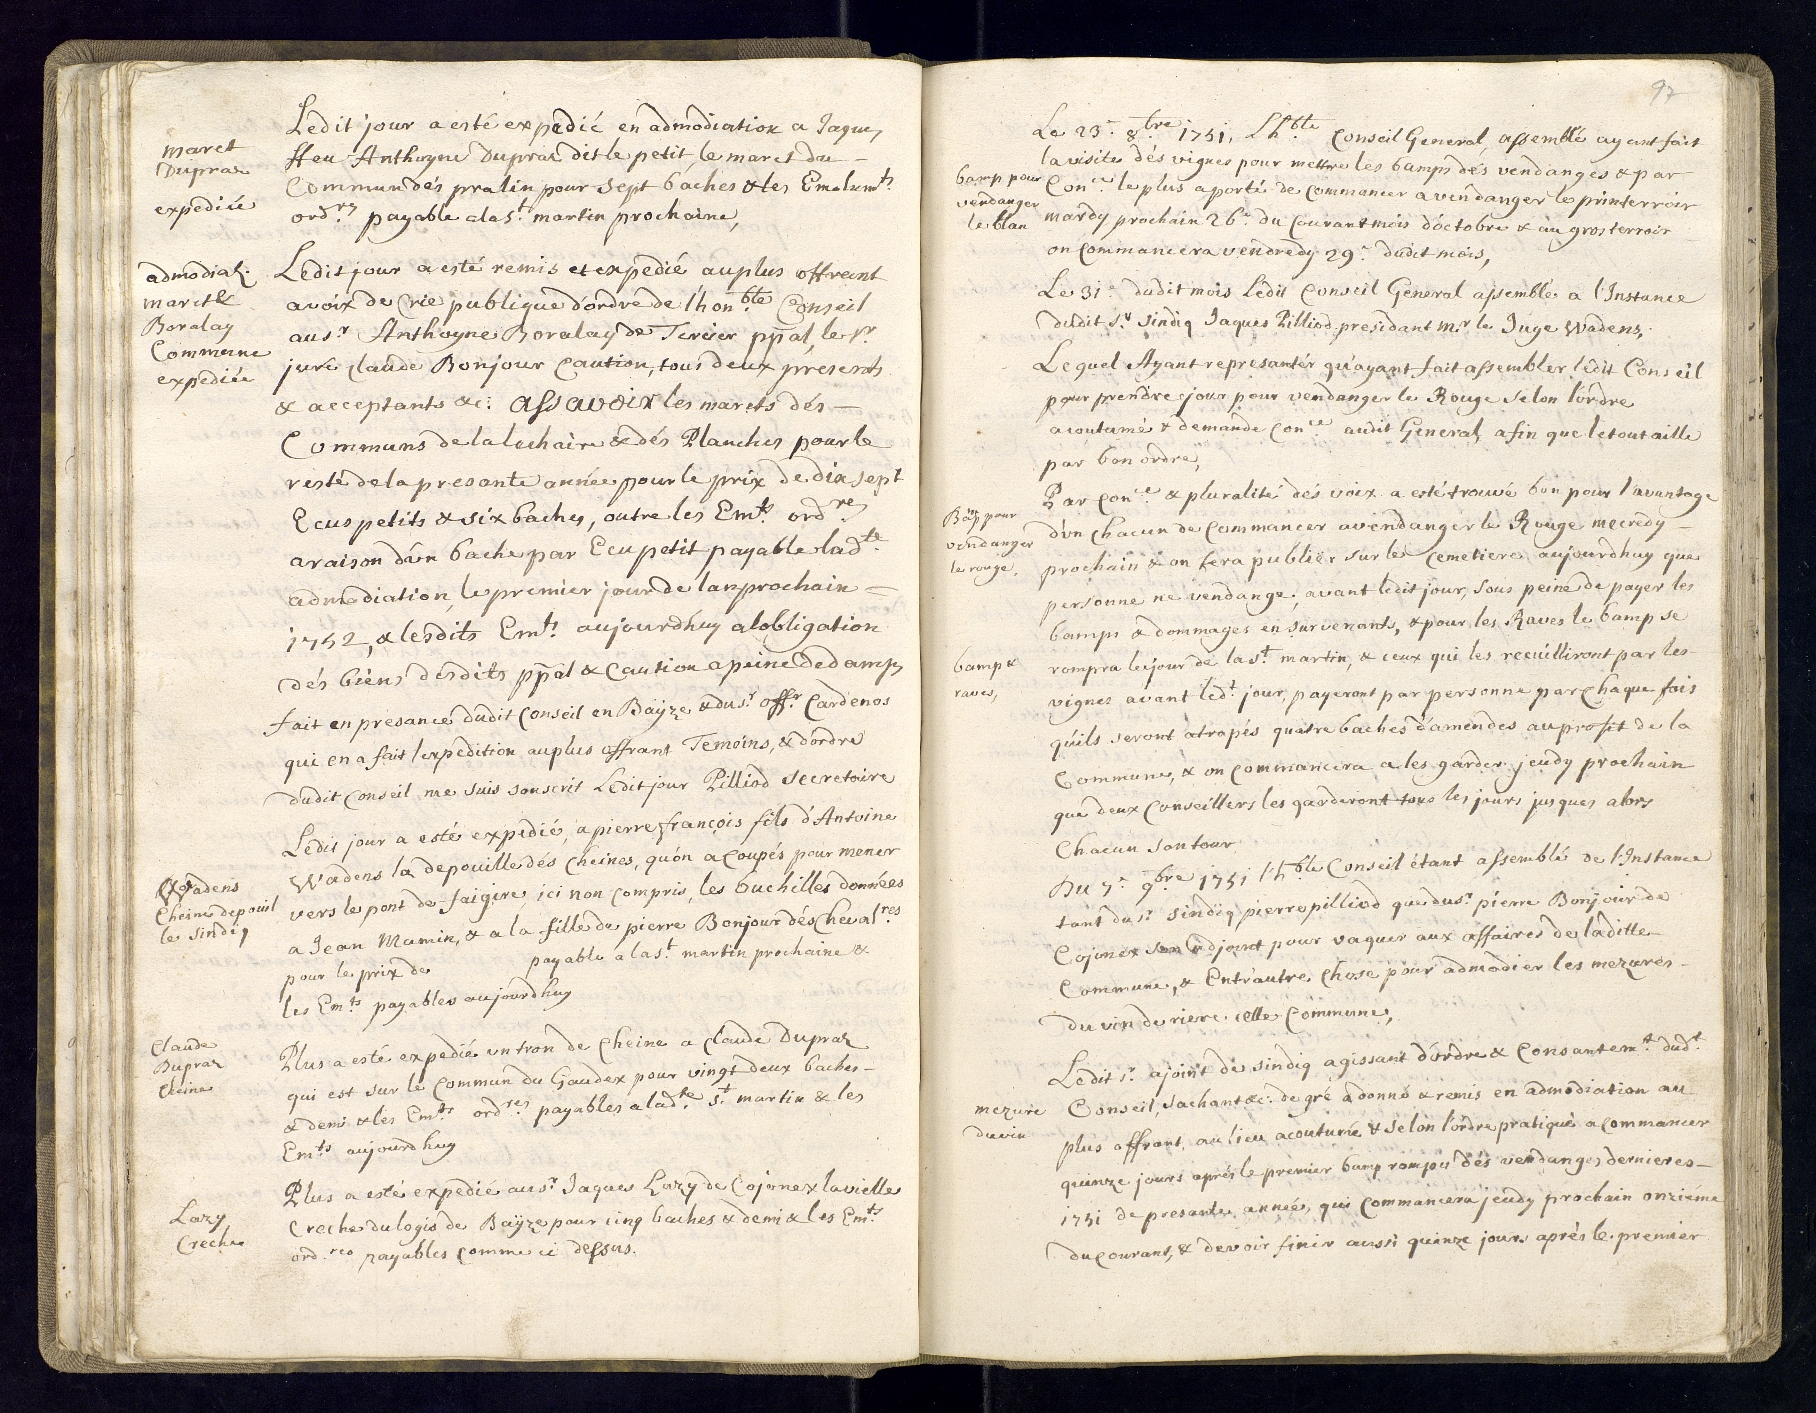 Ledit jour a esté expedié en admodiation a Jaques
maret
ffeu Anthoyne Dupraz dit le petit, le maret du –
Dupraz
Commun dés pralin pour sept baches & les Emolumts.
expediée
ordres payable a la St. martin prochaine,
admodiaõn.
Ledit jour a esté remis et expedié au plus offrant
maret &
a voix de Crie publique d'ordre de l'honble Conseil
Boralay
au sr Anthoyne Boralay de Tercier ppal, le sr.
Commune
juré Claude Bonjour Caution, tous deux presents
expediée
& acceptants &c: assavoir les marets dés –
Communs de la luchaire & dés Planches pour le
reste de la presante année pour le prix de dix sept
Ecus petits & six baches, outre les Emts. ordres
a raison d'un bache par Ecu petit payable ladte.
admodiation, le premier jour de lan prochain –
1752, & lesdits Emts. aujourdhuy a lobligation
dés biens desdits ppal & Caution a peine de damps
fait en presance dudit Conseil en Baÿze & du sr. offr. Cardenos
qui en a fait lexpedition au plus offrant Temoins, & d'ordre
dudit Conseil me suis souscrit Ledit jour Pilliod Secretaire
Ledit jour a esté expedié, a pierre françois fils d'Antoine
Wadens la depouille dés Cheines, qu'on a Coupés pour mener
Wadens
vers le pont de faigire, ici non compris, les buchilles données
Cheine depouil
a Jean Mamin, & a la fille de pierre Bonjour dés Chevalres
le sindiq
pour le prix de payable a la St. martin prochaine &
les Emts. payables aujourdhuy
Claude
Plus a esté expedié un tron de Cheine a Claude Dupraz
Dupraz
qui est sur le Commun du Gaudex pour vingt deux baches –
Cheine
& demi & les Emts. ordres payables a ladte. St. martin & les
Emts. aujourdhuy
Plus a esté expedié au sr. Jaques Lazy de Cojonex la vielle
Lazy
Creche du logis de Baÿze pour cinq baches & demi & les Emts.
Creche
ordres payables Comme ci dessus.
97
Le 23e. 8bre 1751. Lhble Conseil General, assemblé ayant fait
la visite dés vignes pour mettre les bamps dés vendanges & par
bamp pour
Conce. le plus a porté de Commancer a vendanger le printerroir
vendanger
mardy prochain 26e. du Courant mois d'octobre & au gros terroir
le blan
on Commancera vendredy 29e. dudit mois,
Le 31e. dudit mois Ledit Conseil General assemblé a l'Instance
dudit sr. Sindiq Jaques Pilliod presidant mr. le Juge Wadens,
Lequel Ayant represantér qu'ayant fait assembler ledit Conseil
pour prendre jour pour vendanger le Rouge selon l'ordre
acoutumé & demande Conce audit General, afin que le tout aille
par bon ordre,
Par Conce & pluralité dés voix a esté trouvé bon pour l'avantage
Bãp pour
d'un chacun de Commancer a vendanger le Rouge mecredy –
vendanger
prochain & on fera publier sur le Cemetiere aujourdhuy que
le rouge.
personne ne vendange, avant ledit jour, sous peine de payer les
bamps & dommages en survenants, & pour les Raves le bamp se
bamp &
rompra le jour de la St. martin, & ceux qui les recuilliront par les
raves,
vignes avant ledt. jour, payeront par personne par chaque fois
qu'ils seront atrapés quatre baches d'amendes au profit de la
Commune, & on commancera a les garder jeudy prochain
que deux Conseillers les garderont tous les jours jusques alors
Chacun son tour.
Du 7e. 9bre 1751 l'hble Conseil étant assemblé de l'Instance
tant du sr. sindiq pierre pilliod que du sr. pierre Bonjour de
Cojonex son adjoint pour vaquer aux affaires de laditte
Commune, & Entr'autre chose pour admodier les mezures –
du vin de riere icelle Commune,
Ledit sr. ajoint de sindiq agissant d'ordre & Consantemt. dudt.
mezure
Conseil, sachant &c: de gré a donné & remis en admodiation au
du vin
plus offrant, au lieu acoutumé & selon l'ordre pratiqué a commancer
quinze jours aprés le premier bamp rompu dés vendanges dernieres –
1751 de presante année, qui Commancera jeudy prochain onziéme
du Courant, & devoir finir aussi quinze jours aprés le premier